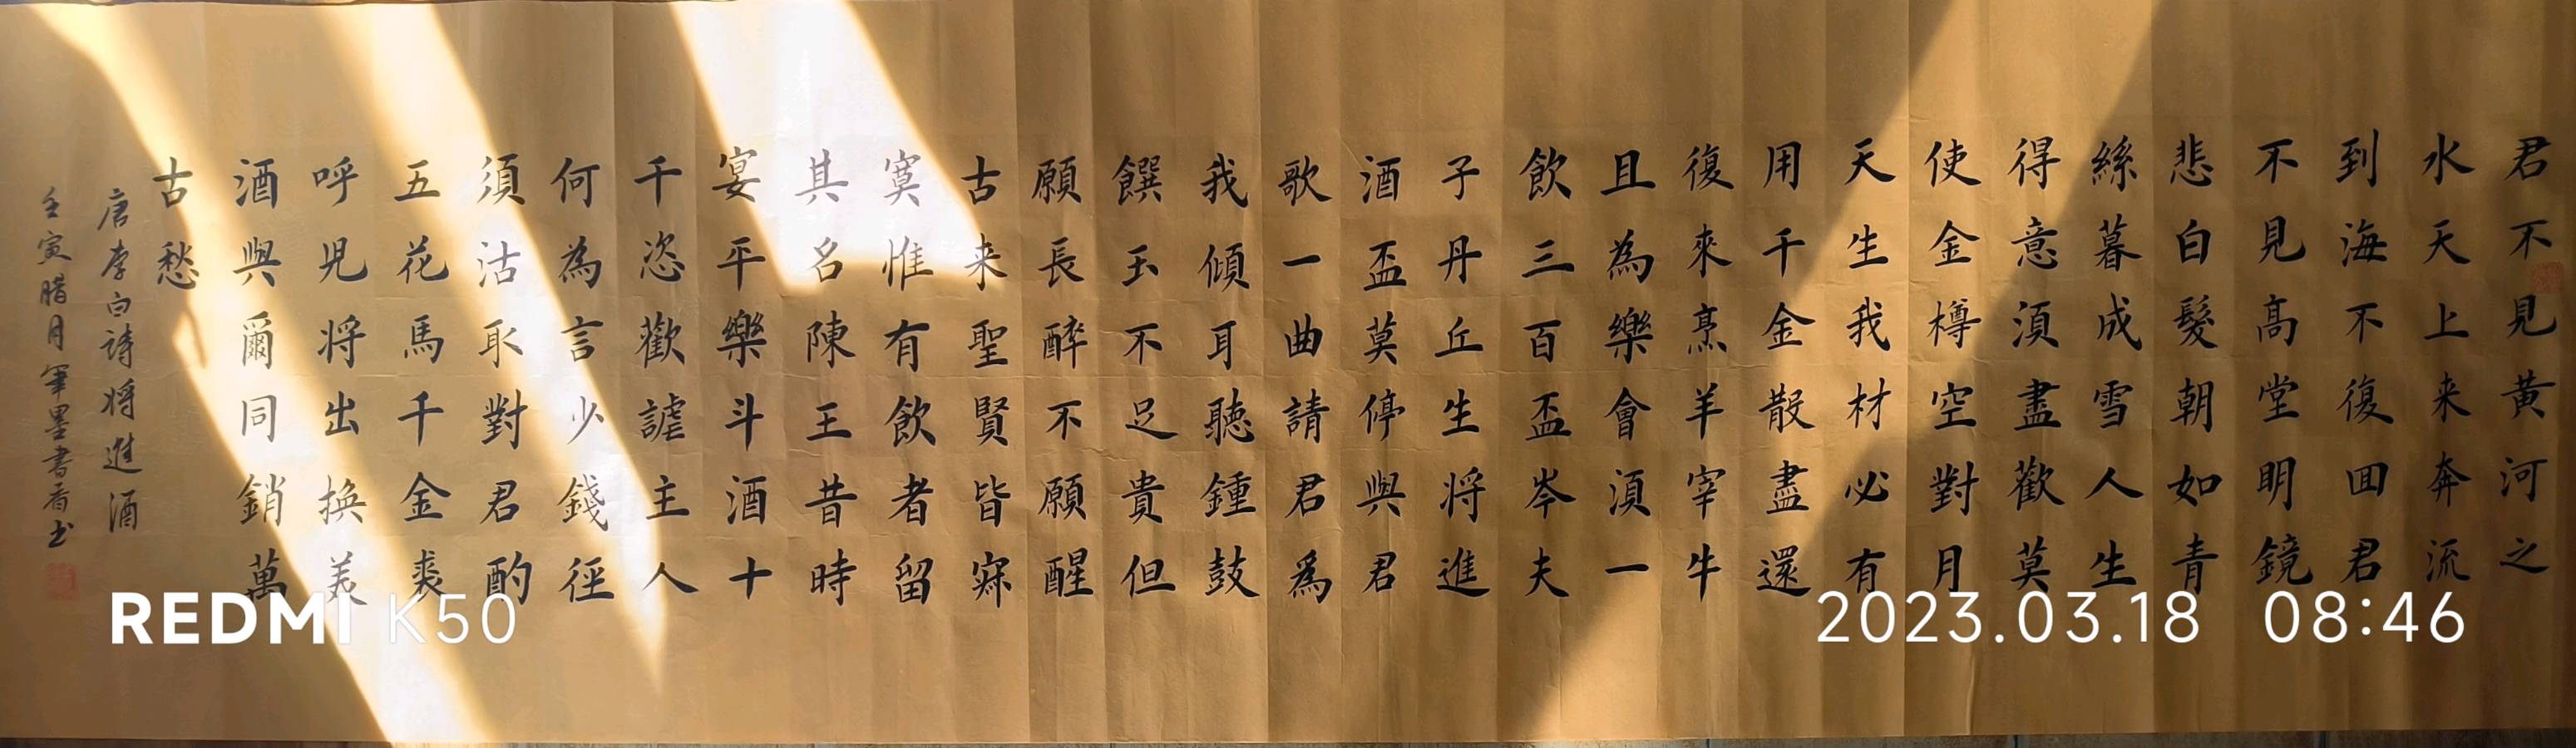 君不見黃河之
水天上来奔流
到海不復回君
不見高堂明鏡
悲白髮朝如青
絲暮成雪人生
得意須盡歡莫
使金樽空對月
天生我材必有
用千金散盡還
復來烹羊宰牛
且為樂會須一
飲三百盃岑夫
子丹丘生将進
酒盃莫停與君
歌一曲請君為
我傾耳聽鍾鼓
饌玉不足貴但
願長醉不願醒
古来聖賢皆寂
寞惟有飲者留
其名陳王昔時
宴平樂斗酒十
千恣歡謔主人
何為言少錢徑
須沽取對君酌
五花馬千金裘
呼児将出換美
酒與爾同銷萬
古愁
唐李白詩将進酒
壬寅腊月軍墨書香书
REDMI K50
2023.03.18 08:46